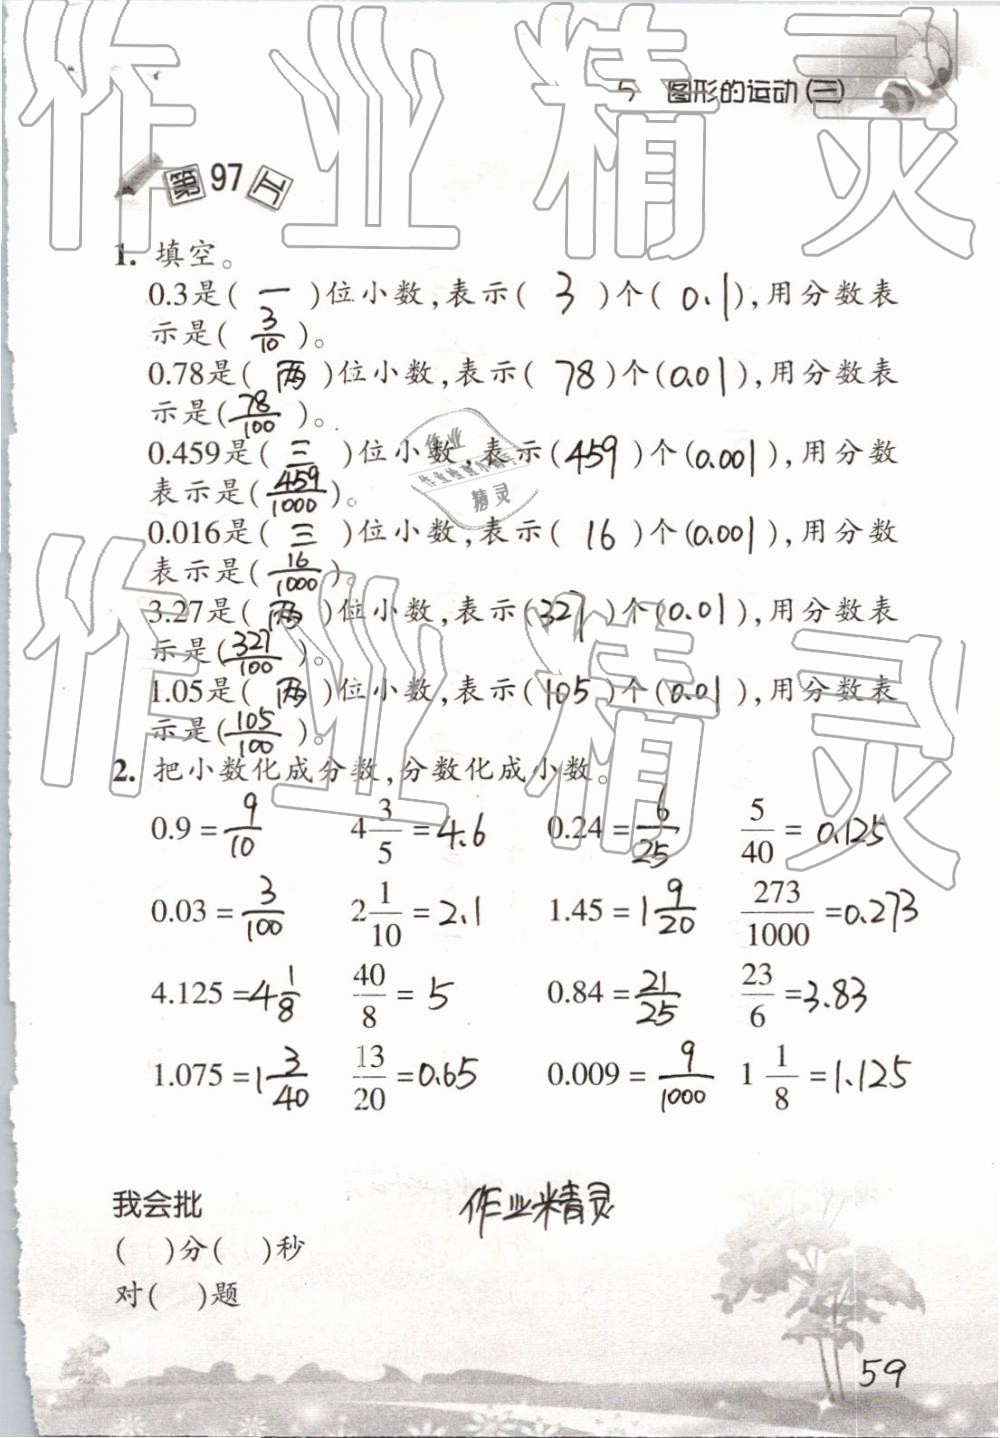 5 图形的运动(三)
第97
1. 填空。
0.3是( 一 )位小数,表示( 3 )个( 0.1 ),用分数表
示是( 3/10 )。
0.78是( 两 )位小数,表示( 78 )个( 0.01 ),用分数表
示是( 78/100 )。
0.459是( 三 )位小数,表示( 459 )个( 0.001 ),用分数
表示是( 459/1000 )。
0.016是( 三 )位小数,表示( 16 )个( 0.001 ),用分数
表示是( 16/1000 )。
3.27是( 两 )位小数,表示( 327 )个( 0.01 ),用分数表
示是( 327/100 )。
1.05是( 两 )位小数,表示( 105 )个( 0.01 ),用分数表
示是( 105/100 )。
2. 把小数化成分数,分数化成小数。
0.9 = 9/10 4 3/5 = 4.6 0.24 = 6/25 5/40 = 0.125
0.03 = 3/100 2 1/10 = 2.1 1.45 = 1 9/20 273/1000 = 0.273
4.125 = 4 1/8 40/8 = 5 0.84 = 21/25 23/6 = 3.83
1.075 = 1 3/40 13/20 = 0.65 0.009 = 9/1000 1 1/8 = 1.125
我会批 作业精灵
( )分( )秒
对( )题
59
作业精灵
作业精灵
作业
精灵